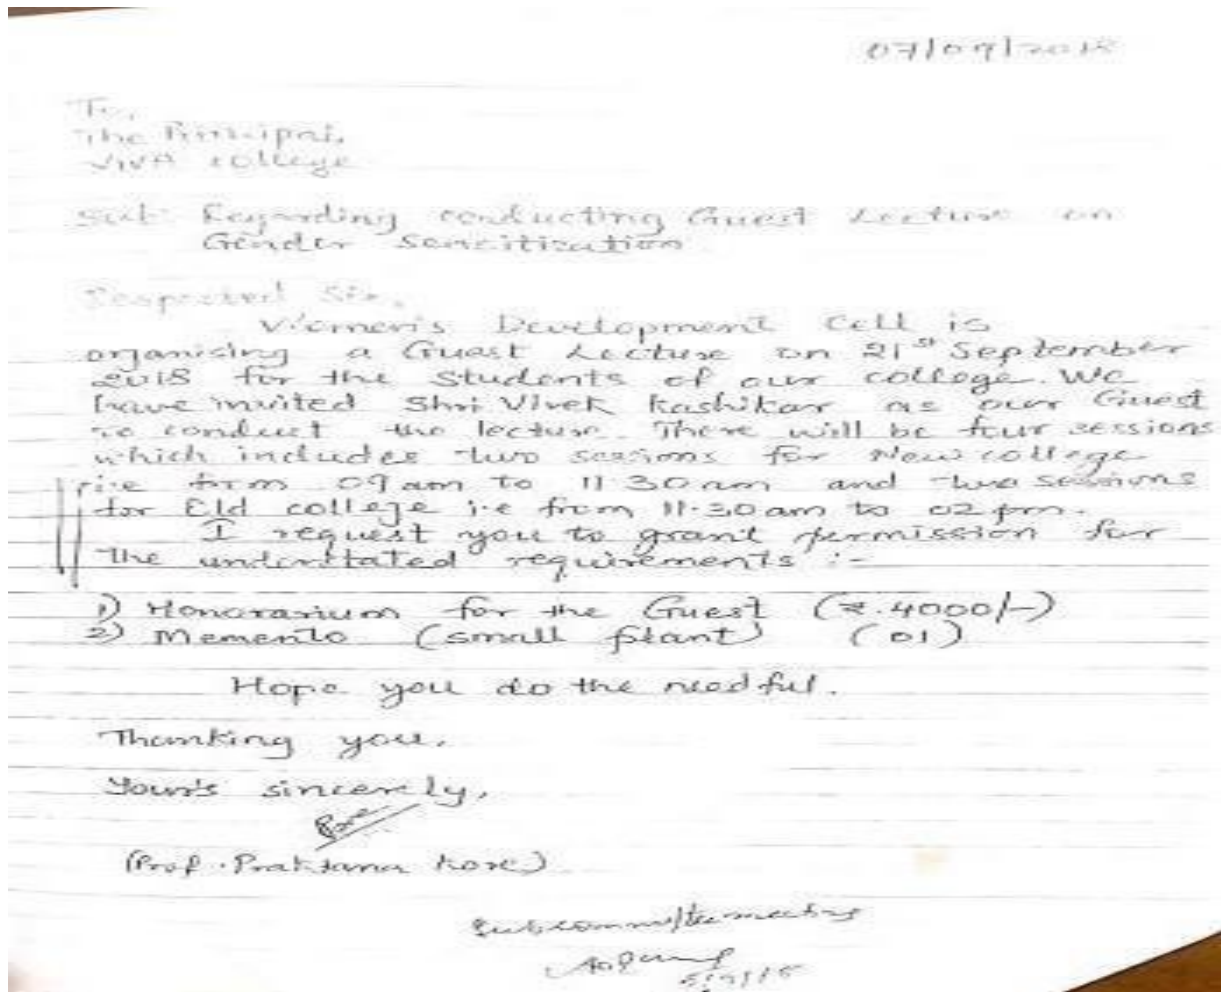 07/09/2018
To,
The Principal,
VIVA College
Sub: Regarding conducting Guest Lecture on
Gender Sensitization
Respected Sir,
Women's Development Cell is
organising a Guest Lecture on 21st September
2018 for the students of our college. We
have invited Shri Vivek Kashikar as our Guest
to conduct the lecture. There will be four sessions
which includes two sessions for New college
i.e from 09 am to 11.30 am and two sessions
for Old college i.e from 11.30 am to 02 pm.
I request you to grant permission for
the understated requirements :-
1) Honorarium for the Guest (₹.4000/-)
2) Memento (small plant) (01)
Hope you do the needful.
Thanking you.
Your's sincerely,
(Prof. Praktana Kore)
Subcommittee meeting